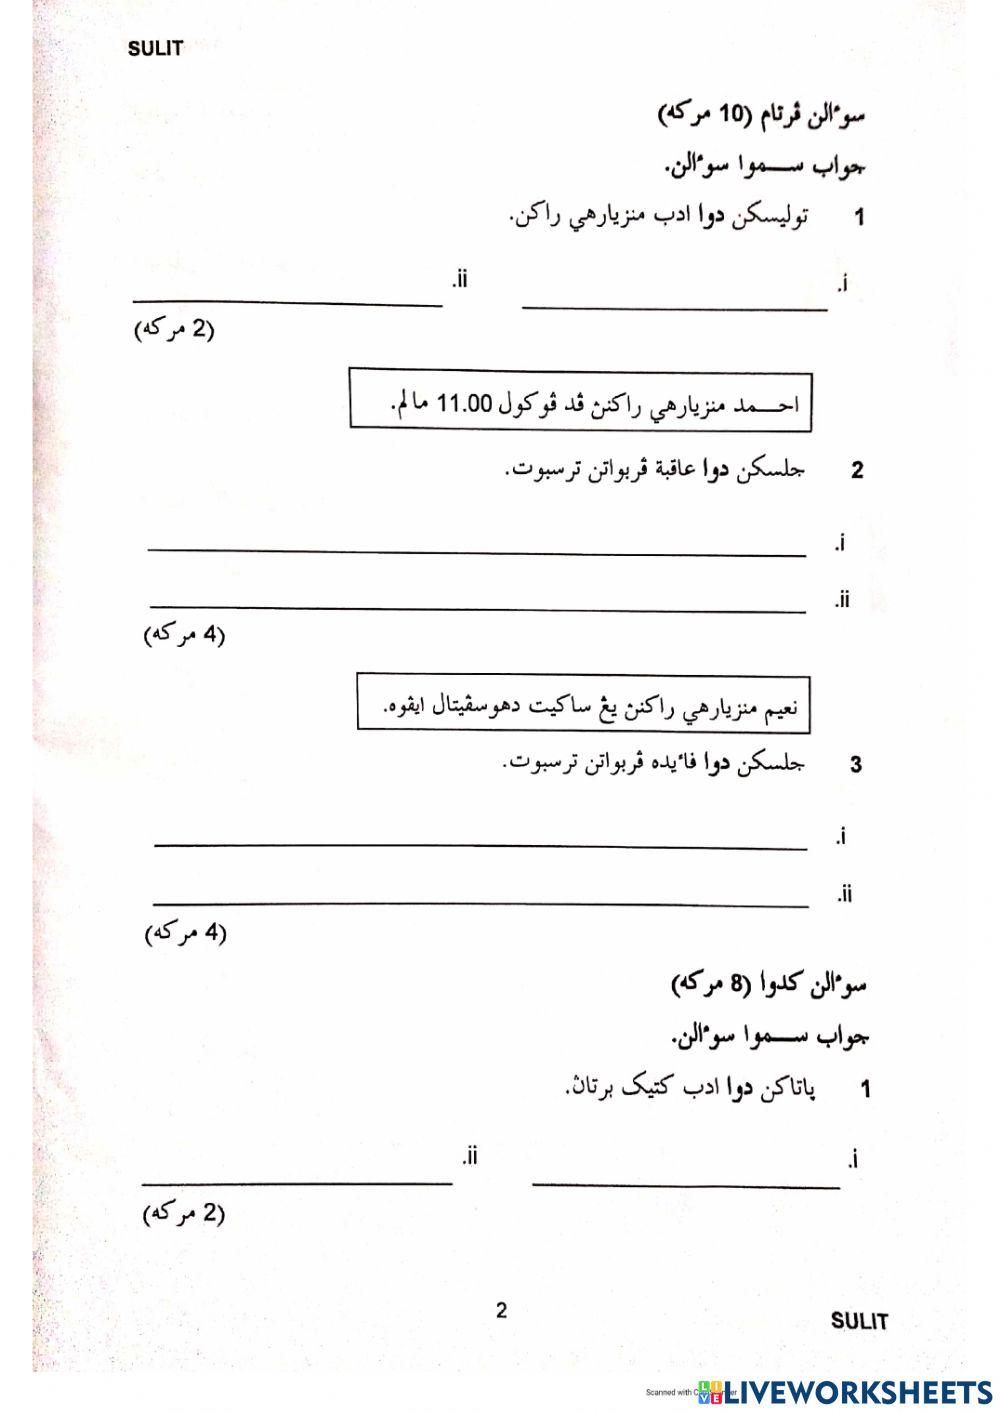 SULIT
سوءالن ڤرتام (10 مركه)
جواب ســـموا سوءالن.
1 توليسكن دوا ادب منزيارهي راكن.
i. ii.
(2 مركه)
احـــمد منزيارهي راكنڽ ڤد ڤوكول 11.00 مالم.
2 جلسكن دوا عاقبة ڤربواتن ترسبوت.
i.
ii.
(4 مركه)
نعيم منزيارهي راكنڽ يڠ ساكيت دهوسڤيتال ايڤوه.
3 جلسكن دوا فاءيده ڤربواتن ترسبوت.
i.
ii.
(4 مركه)
سوءالن كدوا (8 مركه)
جواب ســـموا سوءالن.
1 ڽاتاكن دوا ادب كتيک برتاڽ.
i. ii.
(2 مركه)
2
SULIT
Scanned with
LIVEWORKSHEETS